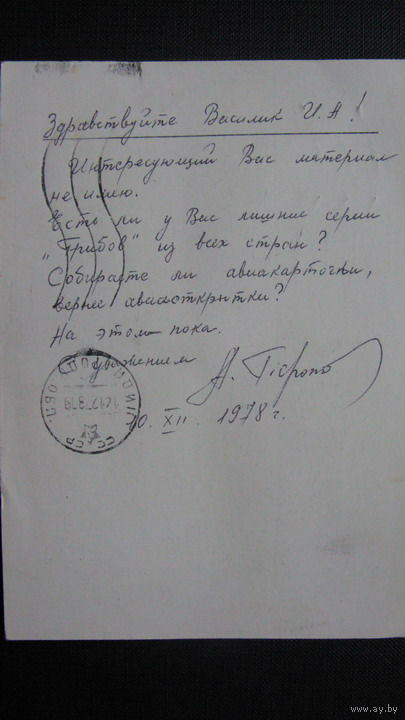 Здравствуйте Василик И.А!
Интересующий Вас материал
не имею.
Есть ли у Вас лишние серии
„Грибов" из всех стран?
Собираете ли авиакарточки,
вернее авиаоткрытки?
На этом пока.
С уважением
10. XII. 1978 г.
СССР
www.ay.by